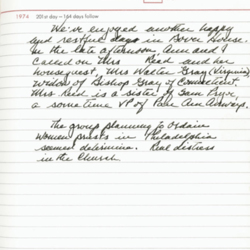 1974 201st day—164 days follow
We've enjoyed another happy
and restful days in Dover House.
In the late afternoon Ann and I
called on Mrs Reid and her
houseguest, Mrs Walter Gray (Virginia)
widow of Bishop Gray of Connecticut.
Mrs Reid is a sister of Sam Pryor
a some time VP of Pan Am Airways.
The group planning to ordain
women priests in Philadelphia
seemed determined. Real distress
in the Church.